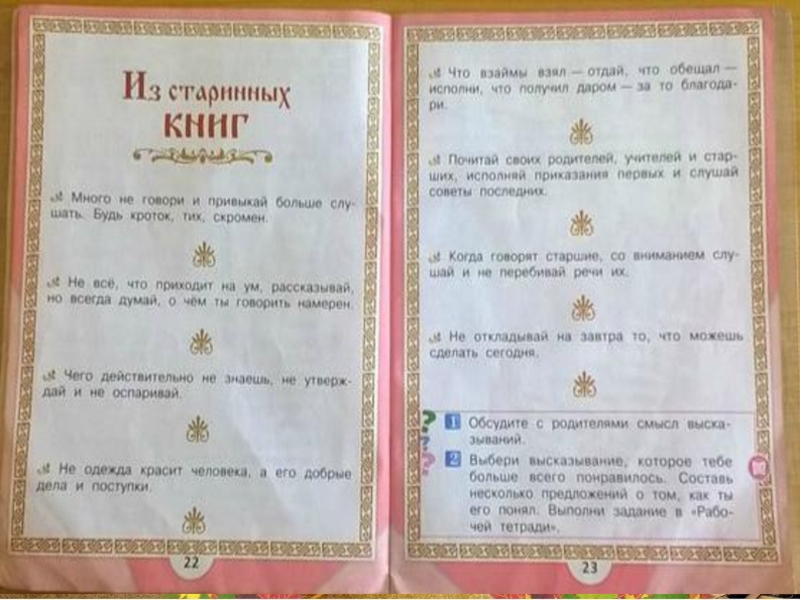 Из старинных
КНИГ
Много не говори и привыкай больше слу-
шать. Будь кроток, тих, скромен.
Не всё, что приходит на ум, рассказывай,
но всегда думай, о чём ты говорить намерен.
Чего действительно не знаешь, не утверж-
дай и не оспаривай.
Не одежда красит человека, а его добрые
дела и поступки.
22
Что взаймы взял — отдай, что обещал —
исполни, что получил даром — за то благода-
ри.
Почитай своих родителей, учителей и стар-
ших, исполняй приказания первых и слушай
советы последних.
Когда говорят старшие, со вниманием слу-
шай и не перебивай речи их.
Не откладывай на завтра то, что можешь
сделать сегодня.
1 Обсудите с родителями смысл выска-
зываний.
2 Выбери высказывание, которое тебе
больше всего понравилось. Составь
несколько предложений о том, как ты
его понял. Выполни задание в «Рабо-
чей тетради».
23